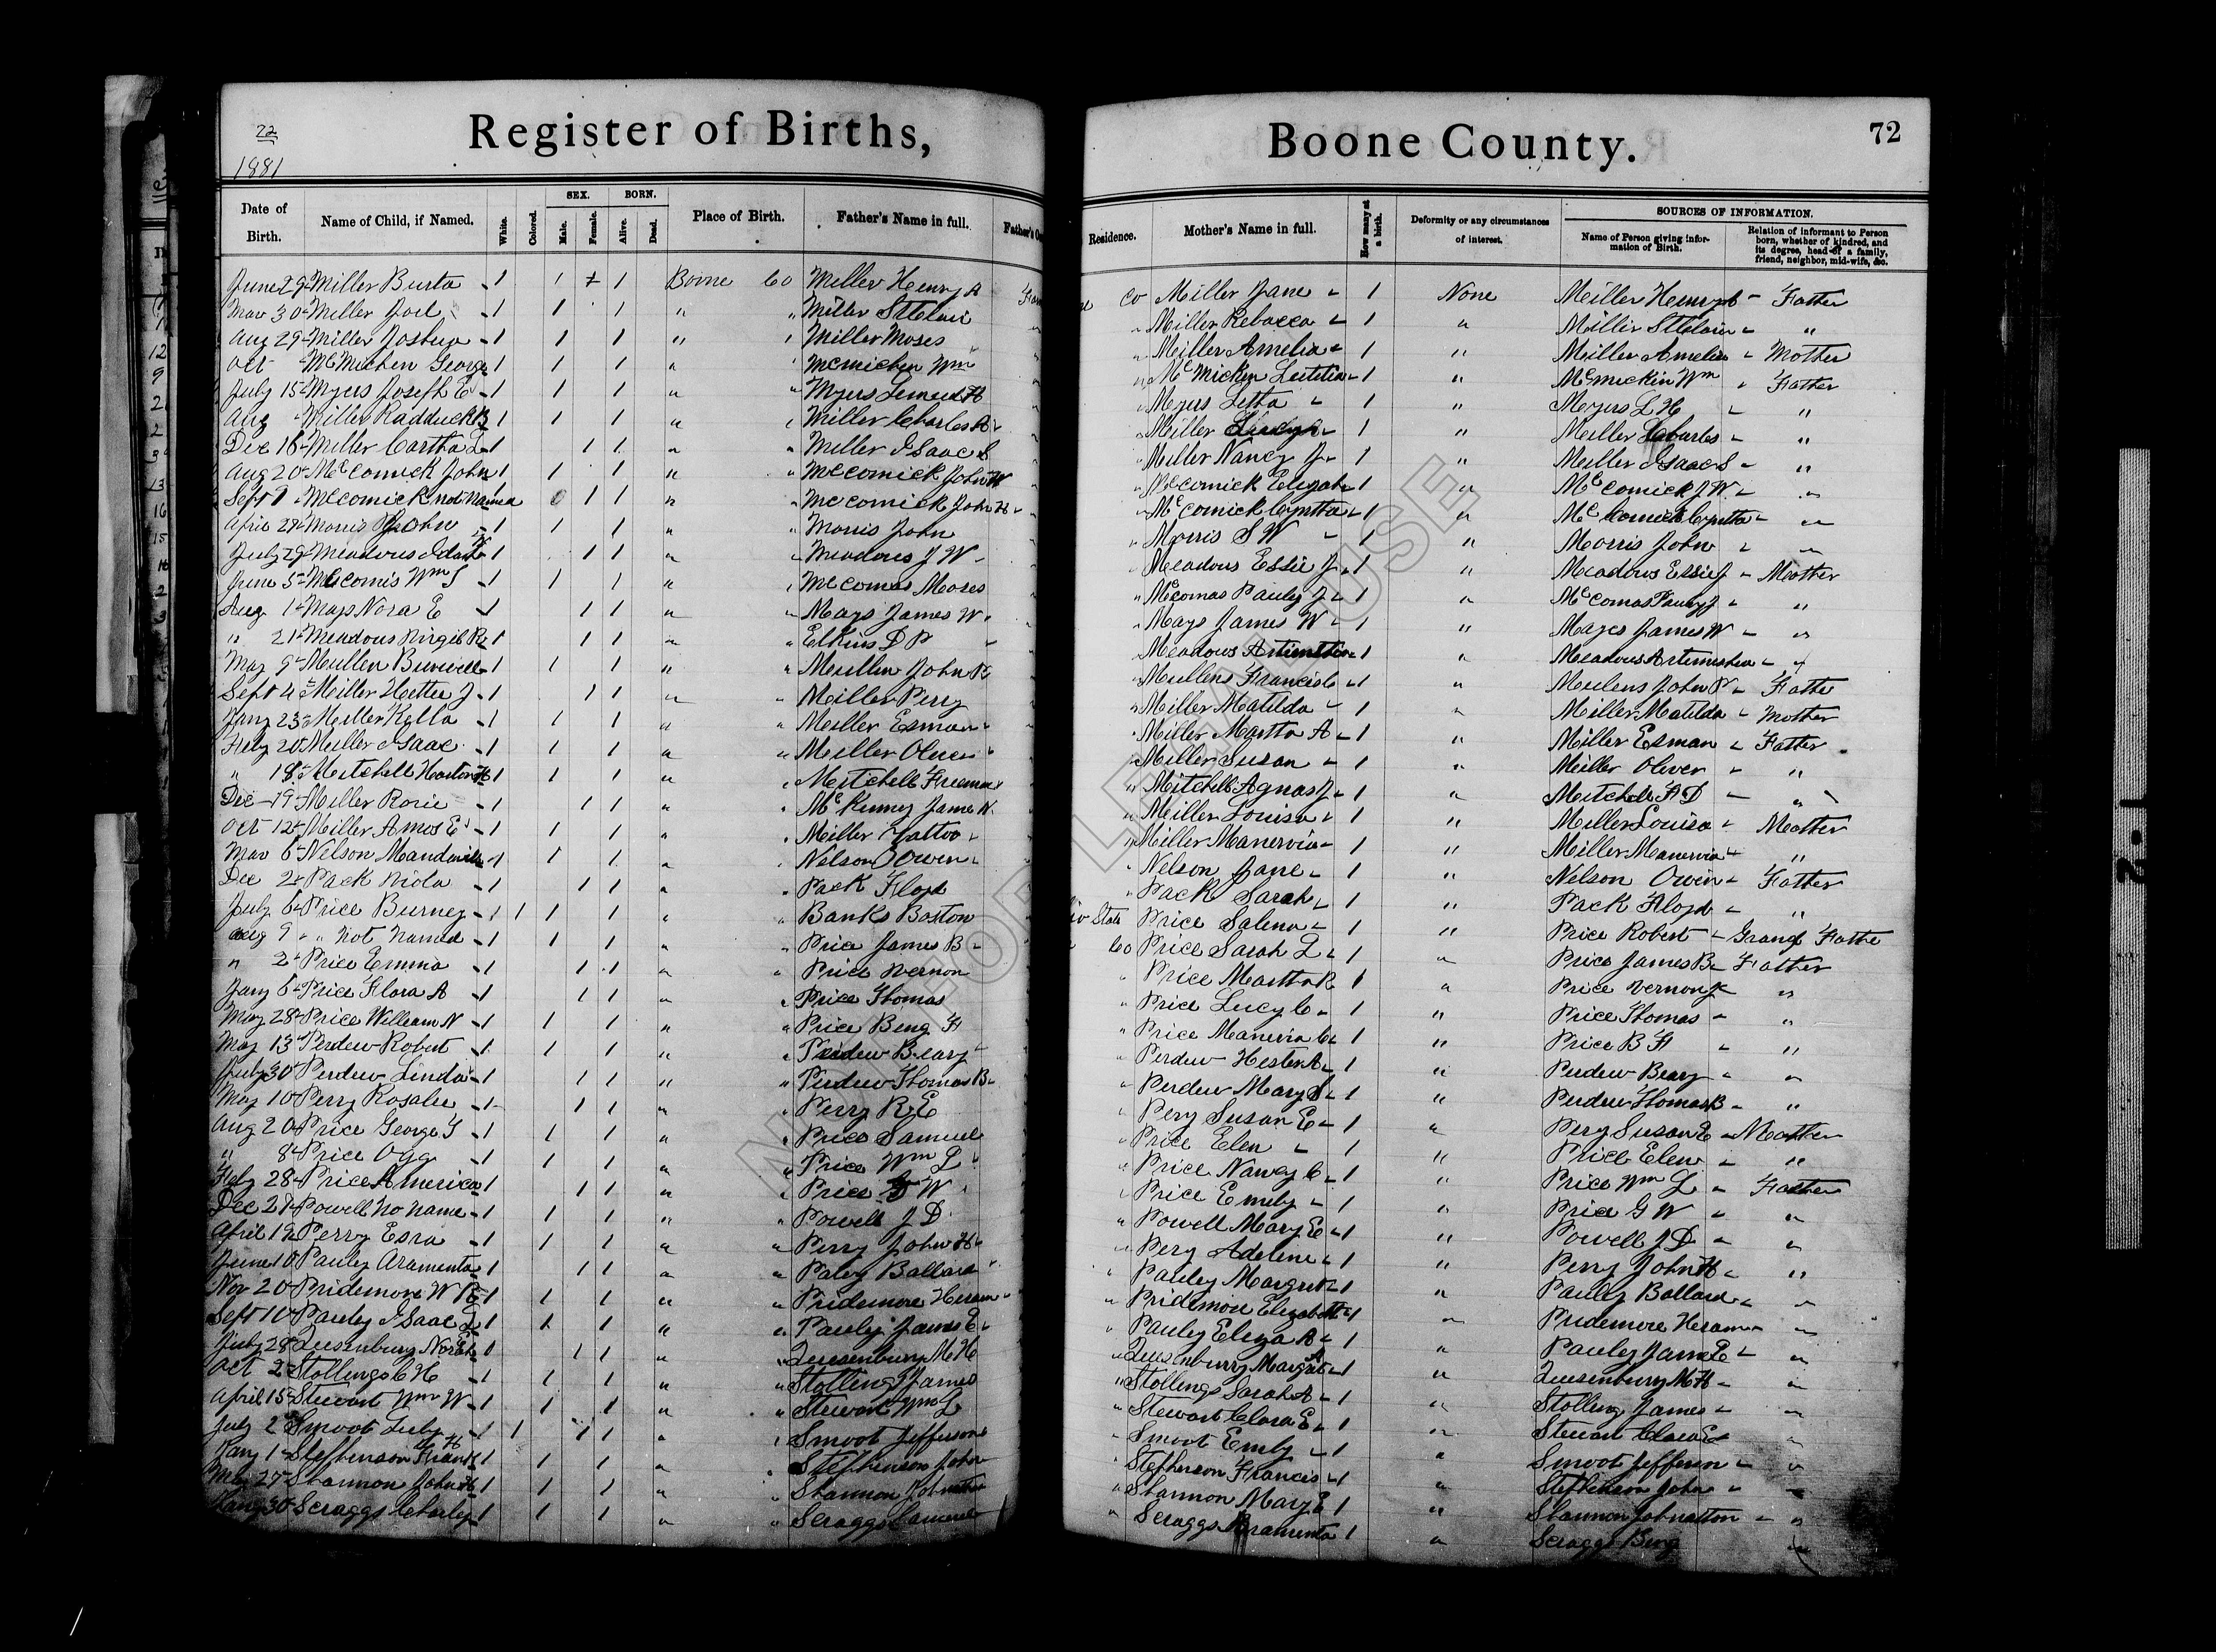 22
1881
Register of Births, Boone County. 72
Date of Birth. Name of Child, if Named. White. Colored. SEX. Male. Female. BORN. Alive. Dead. Place of Birth. Father's Name in full. Residence. Mother's Name in full. How many at a birth. Deformity or any circumstances of interest. SOURCES OF INFORMATION. Name of Person giving information of Birth. Relation of informant to Person born, whether of kindred, and its degree, head of a family, friend, neighbor, mid-wife, &c.
June 29 Miller Burta 1 1 1 Boone Co Miller Henry Co Miller Jane 1 None Miller Henry Father
Mar 30 Miller Joel 1 1 1 " " Miller StClair Miller Rebecca 1 " Miller StClair "
Aug 29 Miller Joshua 1 1 1 " " Miller Moses Miller Amelia 1 " Miller Amelia Mother
Oct McMichen George 1 1 1 " " McMichen Wm McMicken Letitia 1 " McMickin Wm Father
July 15 Myers Joseph E 1 1 1 " " Myers Lemuel H Meyers Letha 1 " Meyers L H "
Aug Miller 1 1 1 " " Miller Charles A Miller 1 " Miller Charles "
Dec 18 Miller 1 1 1 " " Miller Isaac S Miller Nancy J 1 " Miller Isaac S "
Aug 20 McComick John 1 1 1 " " McComick John W McComick Elizabt 1 " McComick J W "
Sept 9 McComick not named 1 1 " " McComick John H McCornick Cyntha 1 " McComick Cyntha "
April 28 Morris John 1 1 1 " " Morris John Morris S W 1 " Morris John "
July 29 Meadows 1 1 1 " " Meadows J W Meadows Essie J 1 " Meadows Essie J Mother
June 5 McComis Wm S 1 1 1 " " McComas Moses McComas Pauly J 1 " McComas Pauly J "
Aug 1 Mays Nora E 1 1 1 " " Mays James W Mays James W 1 " Mayes James W "
" 21 Meadows Virgil R 1 1 1 " " Elkins D P Meadows 1 " Meadows Artemisha "
May 9 Mullen Burwell 1 1 1 " " Mullin John R Mullens Francis C 1 " Mulens John Father
Sept 4 Miller Hettie J 1 1 1 " " Miller Perry Miller Matilda 1 " Miller Matilda Mother
Jany 23 Miller Kella 1 1 1 " " Miller Esman Miller Martha A 1 " Miller Esman Father
Feby 20 Miller Isaac 1 1 1 " " Miller Oliver Miller Susan 1 " Miller Oliver "
" 18 Mitchell 1 1 1 " " Mitchell Freeman Mitchell Agnas J 1 " Mitchell F D "
Dec 19 Miller Rosie 1 1 1 " " McKinney James W Miller Louisa 1 " Miller Louisa Mother
Oct 12 Miller Amos E 1 1 1 " " Miller Miller Manervia 1 " Miller Manervia "
Mar 6 Nelson Mandville 1 1 1 " " Nelson Owen Nelson Jane 1 " Nelson Owin Father
Dec 2 Pack Viola 1 1 1 " " Pack Floyd Pack Sarah 1 " Pack Floyd "
July 6 Price Burney 1 1 1 1 " " Banks Boston State Price Salena 1 " Price Robert Grand Father
Aug 9 " " Not Named 1 1 1 " " Price James B Co Price Sarah L 1 " Price James B Father
" 2 Price Emma 1 1 1 " " Price Vernon Price Martha R 1 " Price Vernon "
Jany 6 Price Flora A 1 1 1 " " Price Thomas Price Lucy C 1 " Price Thomas "
May 28 Price William N 1 1 1 " " Price Benj F Price Manervia C 1 " Price B F "
May 13 Perdew Robert 1 1 1 " " Perdew Beary Perdew Hester A 1 " Perdew Beary "
July 30 Perdew Linda 1 1 1 " " Perdew Thomas B Perdew Mary S 1 " Perdew Thomas B "
May 10 Perry Rosalee 1 1 1 " " Perry R E Pery Susan E 1 " Pery Susan E Mother
Aug 20 Price George 1 1 1 " " Price Samuel Price Elen 1 " Price Elen "
" 8 Price Ogg 1 1 1 " " Price Wm L Price Nancy C 1 " Price Wm L Father
Feby 28 Price America 1 1 1 " " Price G W Price Emily 1 " Price G W "
Dec 27 Powell no name 1 1 1 " " Powell J D Powell Mary E 1 " Powell J D "
April 19 Perry Esra 1 1 1 " " Perry John H Pery Adeline 1 " Perry John H "
June 10 Pauley Aramenta 1 1 1 " " Paley Ballard Pauley Margret 1 " Pauley Ballard "
Nov 20 Pridemore W 1 1 1 " " Pridemore Hiram Pridemore Elizabeth 1 " Pridemore Hiram "
Sept 10 Pauley Isaac L 1 1 1 " " Pauley James E Pauley Eliza A 1 " Pauley James E "
July 28 Quesenbury Norah 1 1 1 " " Quesenbury M H Quesenburry Margret 1 " Quesenburry M H "
Oct 2 Stollings C H 1 1 1 " " Stolling James Stollings Sarah A 1 " Stolling James "
April 15 Stewart Wm W 1 1 1 " " Stewart Wm L Stewart Clara E 1 " Stewart Clara E "
July 2 Smoot Luly 1 1 1 1 " " Smoot Jefferson Smoot Emily 1 " Smoot Jefferson "
Jany 1 Stephenson Frank 1 1 1 " " Stephenson John Stephenson Francis 1 " Stephenson John "
27 Shannon John H 1 1 1 " " Shannon Johnathon Shannon Mary E 1 " Shannon Johnatton "
30 Scraggs Charley 1 1 1 " " Scraggs Scraggs Aramenta 1 " Scraggs Benj "
NOT FOR LEGAL USE
1-2